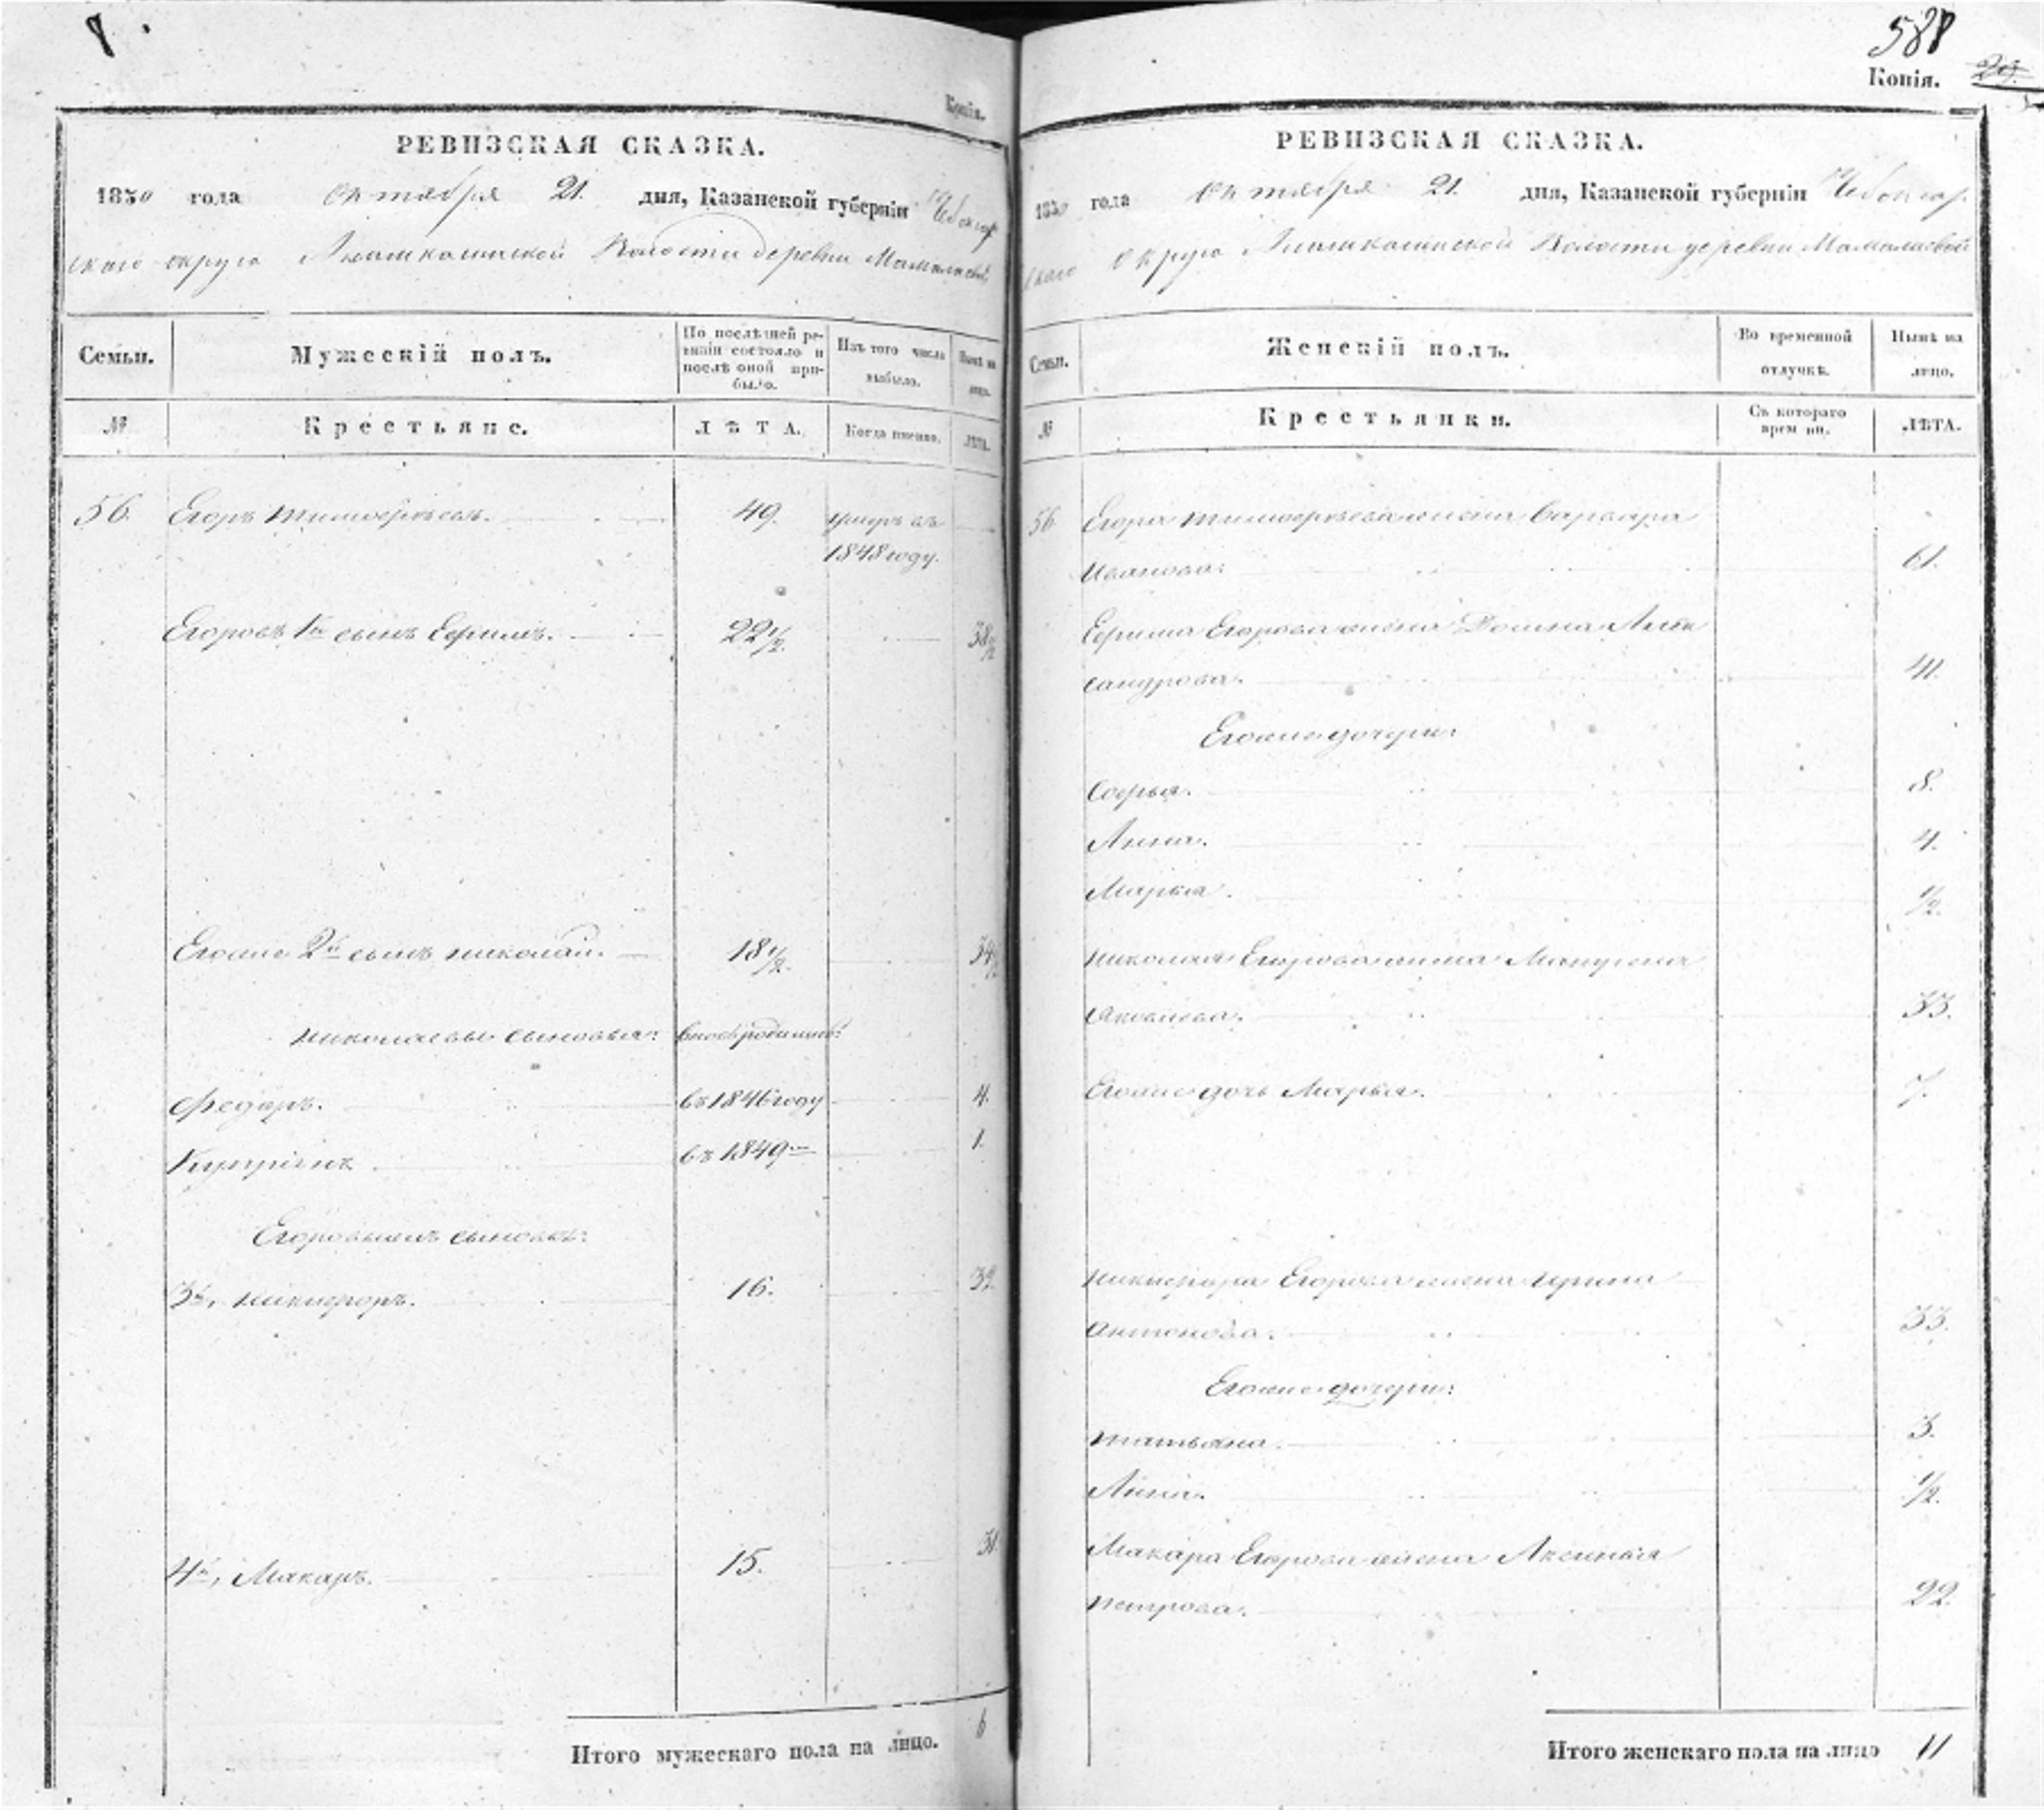 588
Копія.
Копія.
РЕВИЗСКАЯ СКАЗКА.
1850 года Октября 21. дня, Казанской губерніи Чебоксар
скаго округа Волости деревни
Семьи.
Мужескій полъ.
По послѣдней ре-
визіи состояло и
послѣ оной при-
было.
Изъ того числа
выбыло.
Нынѣ на
лицо.
№
Крестьяне.
ЛѢТА.
Когда именно.
ЛѢТА.
56. Егоръ Тимофѣевъ. 49. умеръ въ
1848 году.
Егоровъ 1й сынъ Ефимъ. 22 1/2. 38 1/2
Егоже 2й сынъ Николай. 18 1/2. 34 1/2
Николаевы сыновья:
Федоръ. въ 1846 году 4.
въ 1849 1.
Егоровы сыновья:
3й, Никифоръ. 16. 32.
4й, Макаръ. 15. 31.
Итого мужескаго пола на лицо. 6
РЕВИЗСКАЯ СКАЗКА.
1850 года Октября 21. дня, Казанской губерніи Чебоксар
скаго округа Волости деревни
Семьи.
Женскій полъ.
Во временной
отлучкѣ.
Нынѣ на
лицо.
№
Крестьянки.
Съ котораго
времени.
ЛѢТА.
56. Егора Тимофѣева жена Варвара
Иванова. 61.
Ефима Егорова жена Домна Алек
сандрова. 41.
Егоже дочери:
Софья. 8.
Анна. 4.
Марья. 1/2.
Николая Егорова жена
Яковлева. 33.
Егоже дочь Марья. 7.
Никифора Егорова жена Ирина
Антонова. 33.
Егоже дочери:
Татьяна. 3.
Анна. 1/2.
Макара Егорова жена Аксинья
Петрова. 22.
Итого женскаго пола на лицо 11